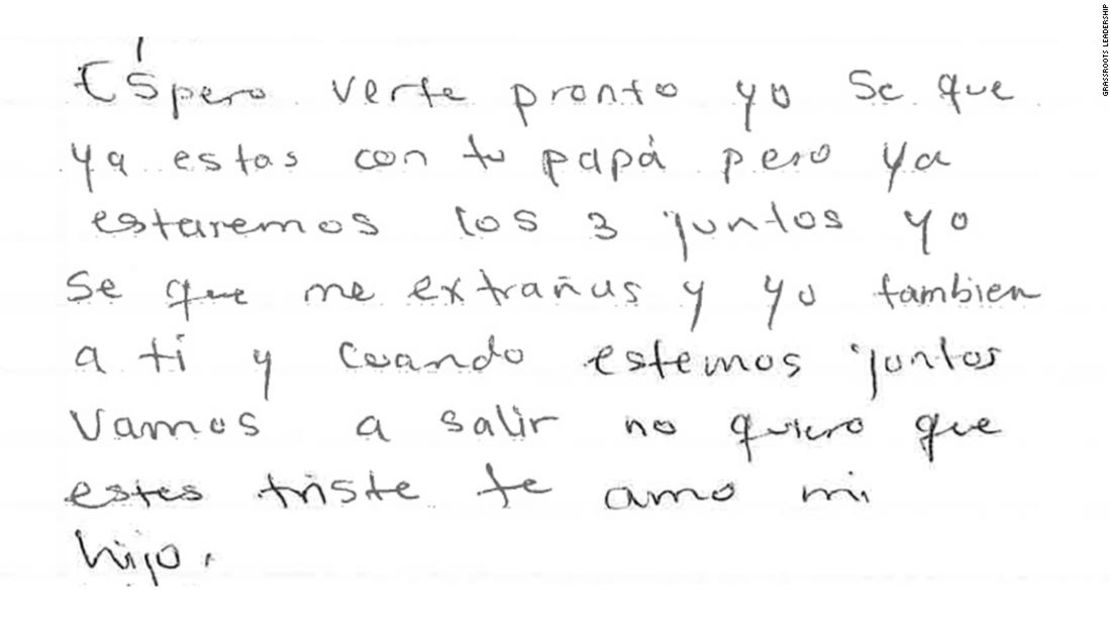 Espero verte pronto yo se que
ya estas con tu papá pero ya
estaremos los 3 juntos yo
se que me extrañas y yo tambien
a ti y cuando estemos juntos
Vamos a salir no quiero que
estes triste te amo mi
hijo.
GRASSROOTS LEADERSHIP